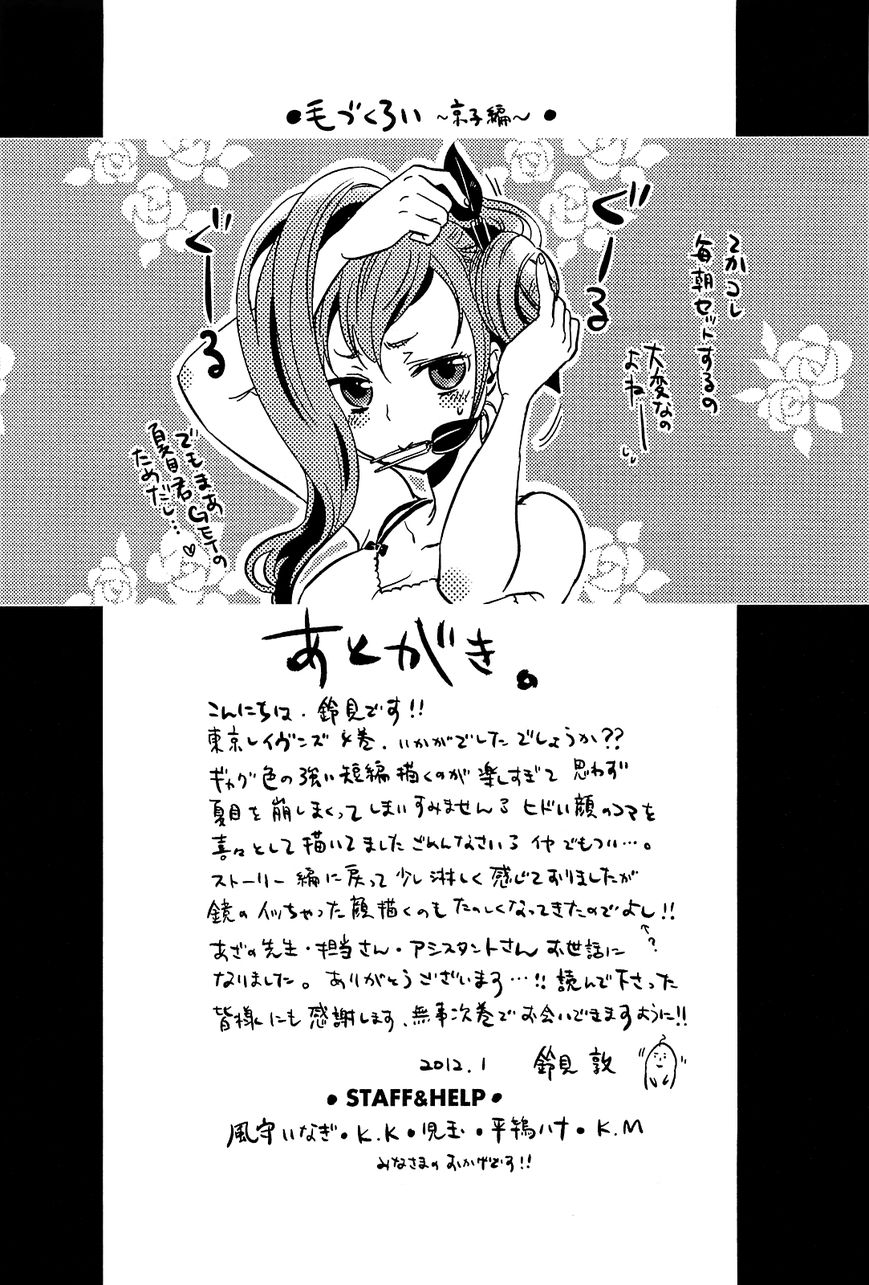 ●毛づくろい ~京子編~●
ぐーる
てかコレ
毎朝セットするの
大変なの
よねー
ぐーる
でもまあ
夏目君GETの
ためだし…♡
あとがき。
こんにちは、鈴見です!!
東京レイヴンズ4巻、いかがでしたでしょうか??
ギャグ色の強い短編描くのが楽しすぎて思わず
夏目を崩しまくってしまいすみませんる ヒドい顔のコマを
喜々として描いてました ごめんなさいる 仲でもつい…。
ストーリー編に戻って少し淋しく感じておりましたが
鏡のイッちゃった顔描くのもたのしくなってきたのでよし!!
↑?
あざの先生・担当さん・アシスタントさん お世話に
なりました。ありがとうございます…!!読んで下さった
皆様にも感謝します、無事次巻でお会いできますように!!
2012.1 鈴見 敦
●STAFF&HELP●
風守いなぎ●K.K●児玉●平鴇ハナ●K.M
みなさまのおかげです!!